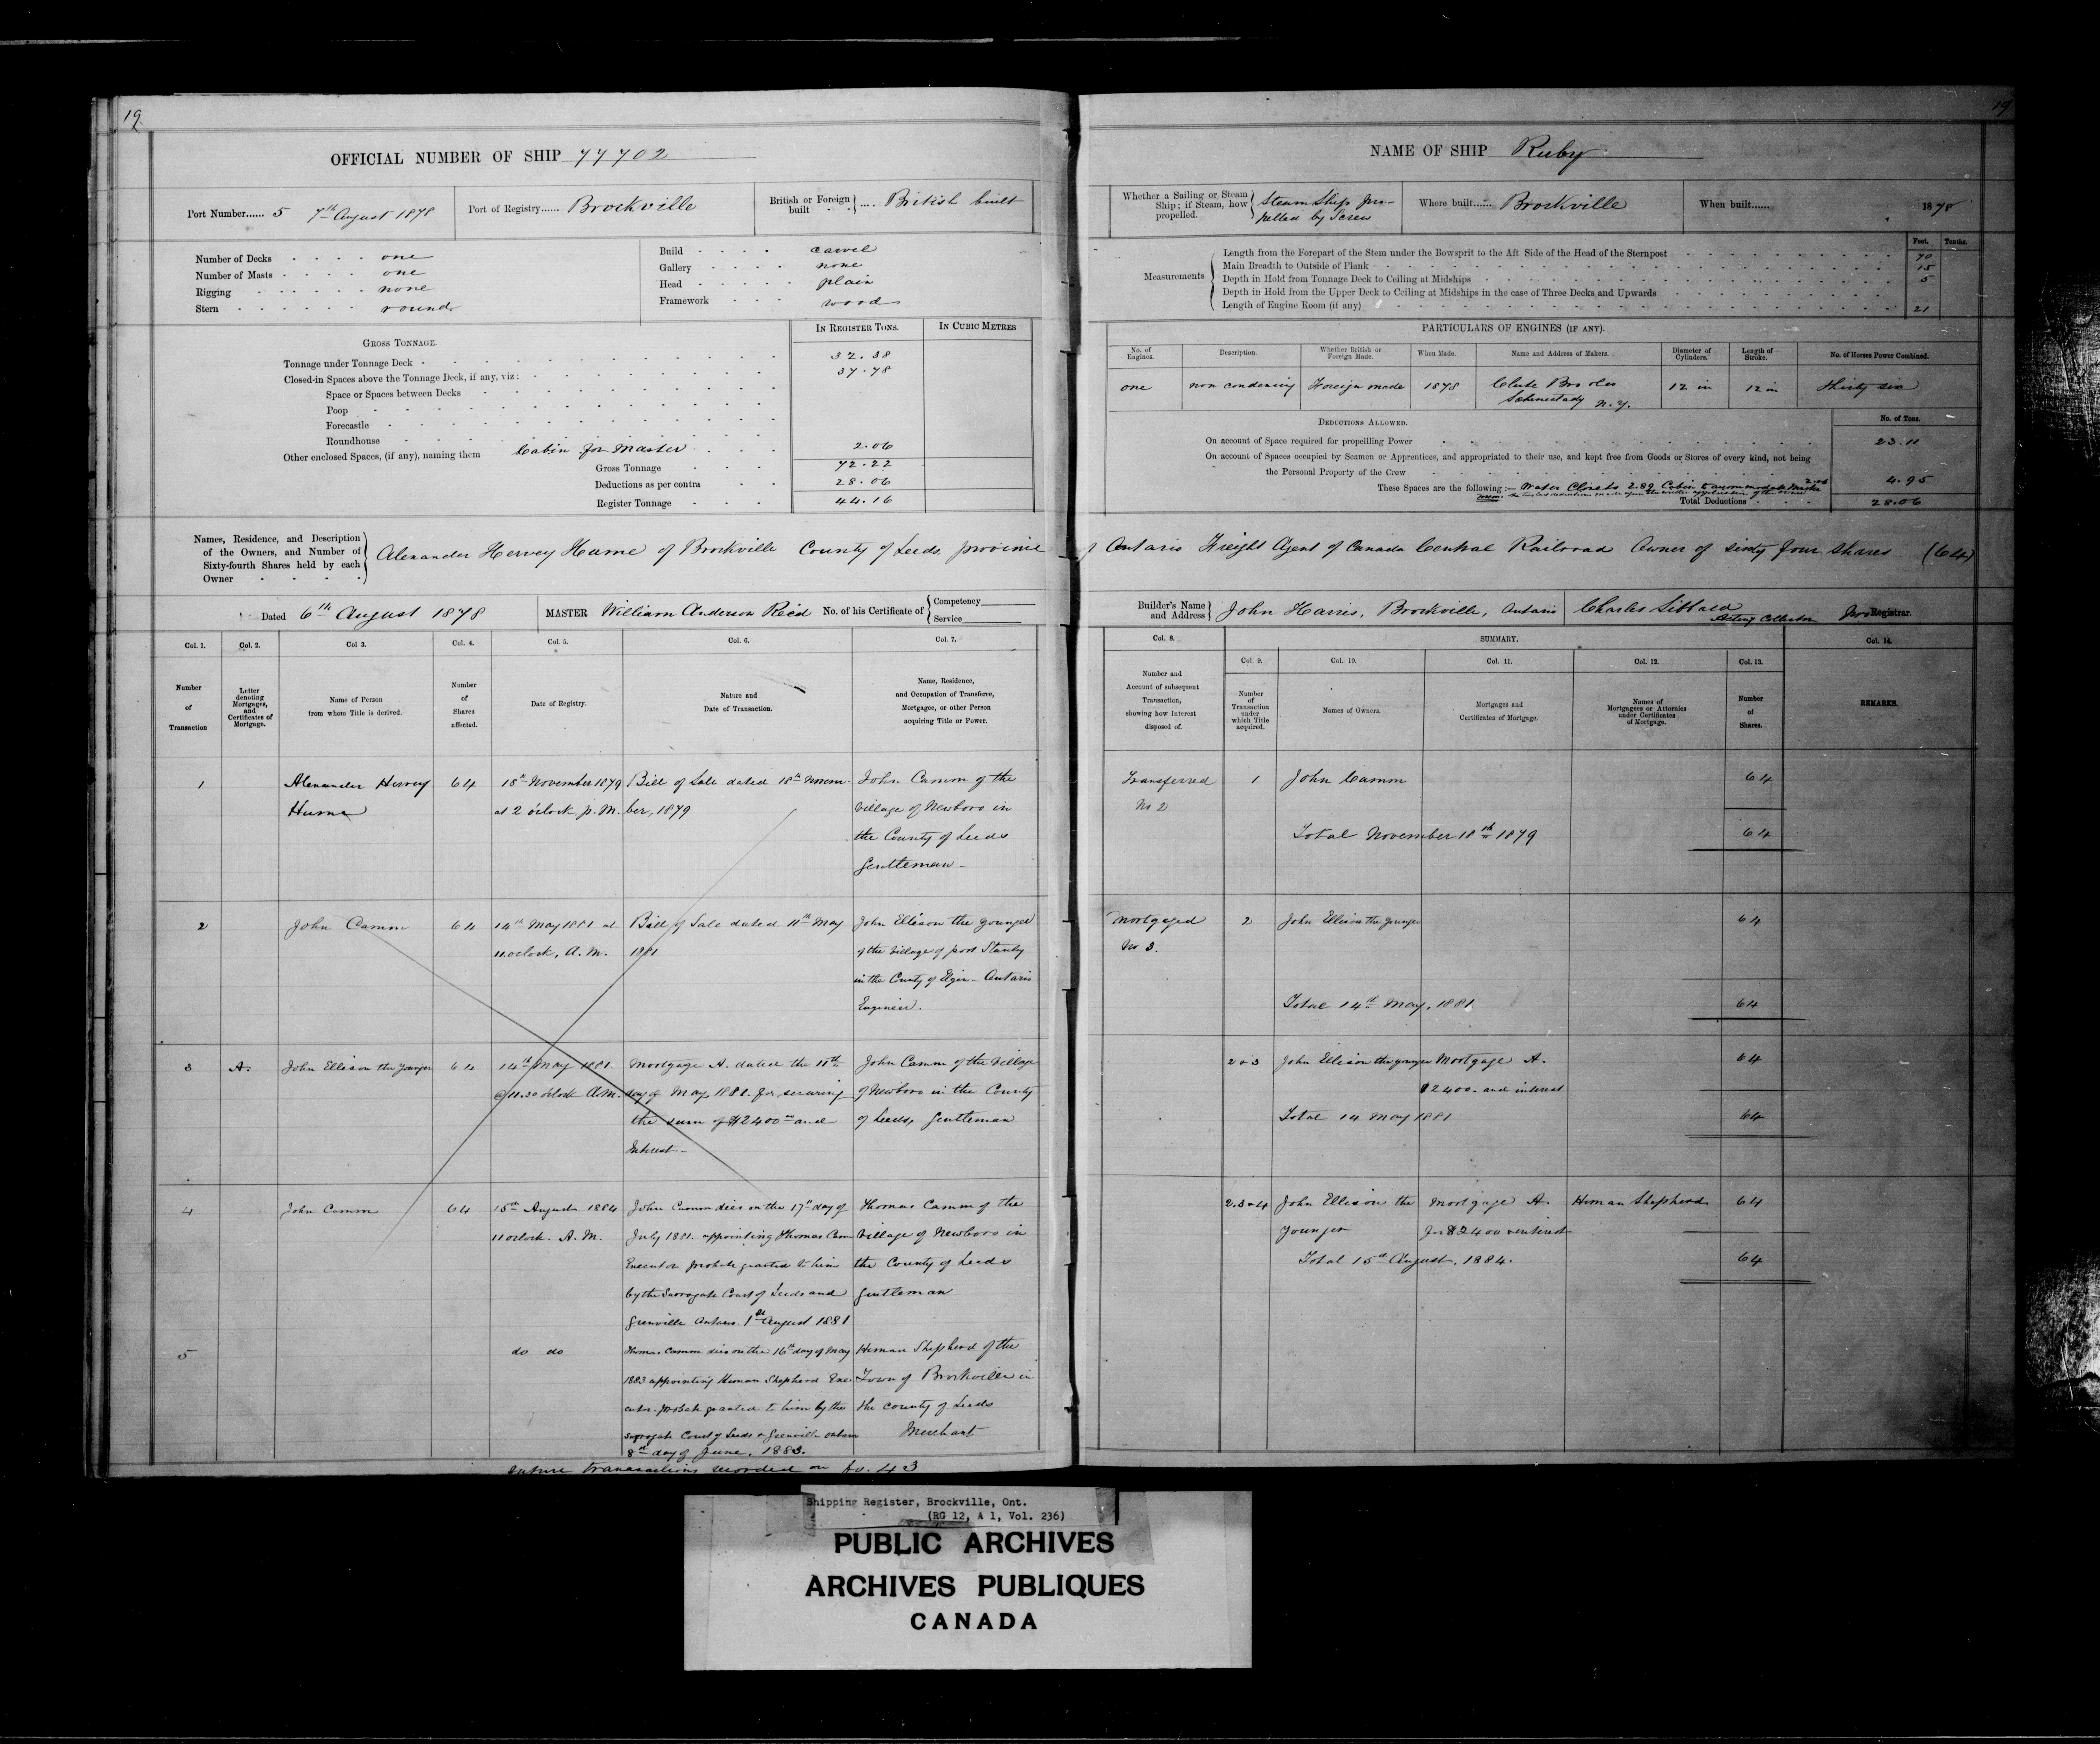 19
OFFICIAL NUMBER OF SHIP 77702
Port Number...... 5 7th August 1878
Port of Registry...... Brockville
British or Foreign built .... British built
Number of Decks one
Number of Masts one
Rigging none
Stern round
Build carvel
Gallery none
Head plain
Framework wood
GROSS TONNAGE.
IN REGISTER TONS.
IN CUBIC METRES
Tonnage under Tonnage Deck 32.38
Closed-in Spaces above the Tonnage Deck, if any, viz: 37.78
Space or Spaces between Decks
Poop
Forecastle
Roundhouse
Other enclosed Spaces, (if any), naming them Cabin for Master 2.06
Gross Tonnage 72.22
Deductions as per contra 28.06
Register Tonnage 44.16
Names, Residence, and Description of the Owners, and Number of Sixty-fourth Shares held by each Owner
Alexander Hervey Hume of Brockville County of Leeds province
Dated 6th August 1878
MASTER William Anderson Reid No. of his Certificate of Competency Service
Col. 1. Col. 2. Col 3. Col. 4. Col. 5. Col. 6. Col. 7.
Number of Transaction
Letter denoting Mortgages, and Certificates of Mortgage.
Name of Person from whom Title is derived.
Number of Shares affected.
Date of Registry.
Nature and Date of Transaction.
Name, Residence, and Occupation of Transferee, Mortgagee, or other Person acquiring Title or Power.
1 Alexander Hervey 64 18th November 1879 Bill of Sale dated 18th Novem- John Camm of the
Hume at 2 o'clock p.M. ber, 1879 Village of Newboro in
the County of Leeds
Gentleman
2 John Camm 64 14th May 1881 at Bill of Sale dated 11th May John Ellison the younger
11 oclock, A.M. 1881 of the Village of port Stanley
in the County of Elgin - Ontario
Engineer.
3 A. John Ellison the younger 64 14th May 1881 Mortgage A. dated the 11th John Camm of the Village
@ 11.30 oclock A.M. day of May 1881. for securing of Newboro in the County
the sum of $2400 and of Leeds, Gentleman
Interest
4 John Camm 64 15th August 1884 John Camm dies on the 17th day of Thomas Camm of the
11 oclock. A.M. July 1881. appointing Thomas Camm Village of Newboro in
Executor probate granted to him the County of Leeds
by the Surrogate Court of Leeds and Gentleman
Grenville Ontario. 1st August 1881
5 do do Thomas Camm dies on the 16th day of May Heman Shepherd of the
1883 appointing Heman Shepherd Exe- Town of Brockville in
cutor. probate granted to him by the the County of Leeds
Surrogate Court of Leeds & Grenville Ontario Merchant
8th day of June, 1883.
future transactions recorded on fo. 43
19
NAME OF SHIP Ruby
Whether a Sailing or Steam Ship; if Steam, how propelled. Steam Ship pro-
pelled by Screw
Where built...... Brockville
When built...... 1878
Feet. Tenths.
Measurements
Length from the Forepart of the Stem under the Bowsprit to the Aft Side of the Head of the Sternpost 70
Main Breadth to Outside of Plank 15
Depth in Hold from Tonnage Deck to Ceiling at Midships 5
Depth in Hold from the Upper Deck to Ceiling at Midships in the case of Three Decks and Upwards
Length of Engine Room (if any) 21
PARTICULARS OF ENGINES (IF ANY).
No. of Engines. Description. Whether British or Foreign Made. When Made. Name and Address of Makers. Diameter of Cylinders. Length of Stroke. No. of Horses Power Combined.
one non condensing Foreign made 1878 Clute Bros 12 in 12 in thirty six
N.Y.
DEDUCTIONS ALLOWED.
No. of Tons.
On account of Space required for propelling Power 23.11
On account of Spaces occupied by Seamen or Apprentices, and appropriated to their use, and kept free from Goods or Stores of every kind, not being
the Personal Property of the Crew 4.95
These Spaces are the following:— Water Closets 2.89 Cabin to accommodate Master 2.06
Total Deductions 28.06
of Ontario Freight Agent of Canada Central Railroad Owner of sixty four shares (64)
Builder's Name and Address John Harris, Brockville, Ontario
Charles Sibbald
Acting Collector Registrar.
Col. 8. SUMMARY. Col. 14.
Col. 9. Col. 10. Col. 11. Col. 12. Col. 13.
Number and Account of subsequent Transaction, showing how Interest disposed of.
Number of Transaction under which Title acquired.
Names of Owners.
Mortgages and Certificates of Mortgage.
Names of Mortgagees or Attornies under Certificates of Mortgage.
Number of Shares.
REMARKS.
Transferred 1 John Camm 64
No 2
Total November 18th 1879 64
Mortgaged 2 John Ellison the younger 64
No 3.
Total 14th May, 1881 64
2 & 3 John Ellison the younger Mortgage A. 64
$2400. and interest
Total 14 May 1881 64
2.3 & 4 John Ellison the Mortgage A. Heman Shepherd 64
younger for $2400 & interest
Total 15th August, 1884. 64
Shipping Register, Brockville, Ont.
(RG 12, A 1, Vol. 236)
PUBLIC ARCHIVES
ARCHIVES PUBLIQUES
CANADA